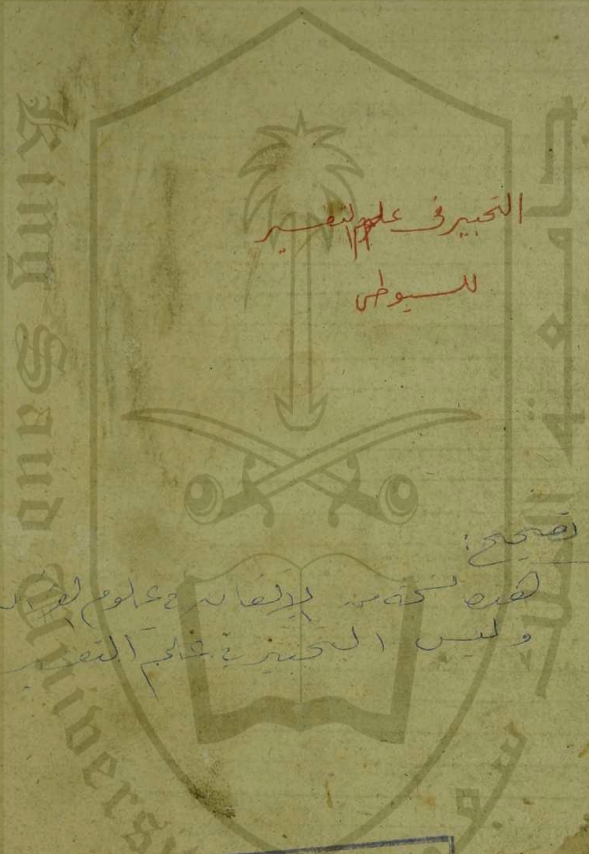 التحبير في علم التفسير
للسيوطى
تصحيح:
هذه نسخة من الإتقان في علوم القرآن
وليس التحبير في علم التفسير
King Saud University
جامعة الملك سعود